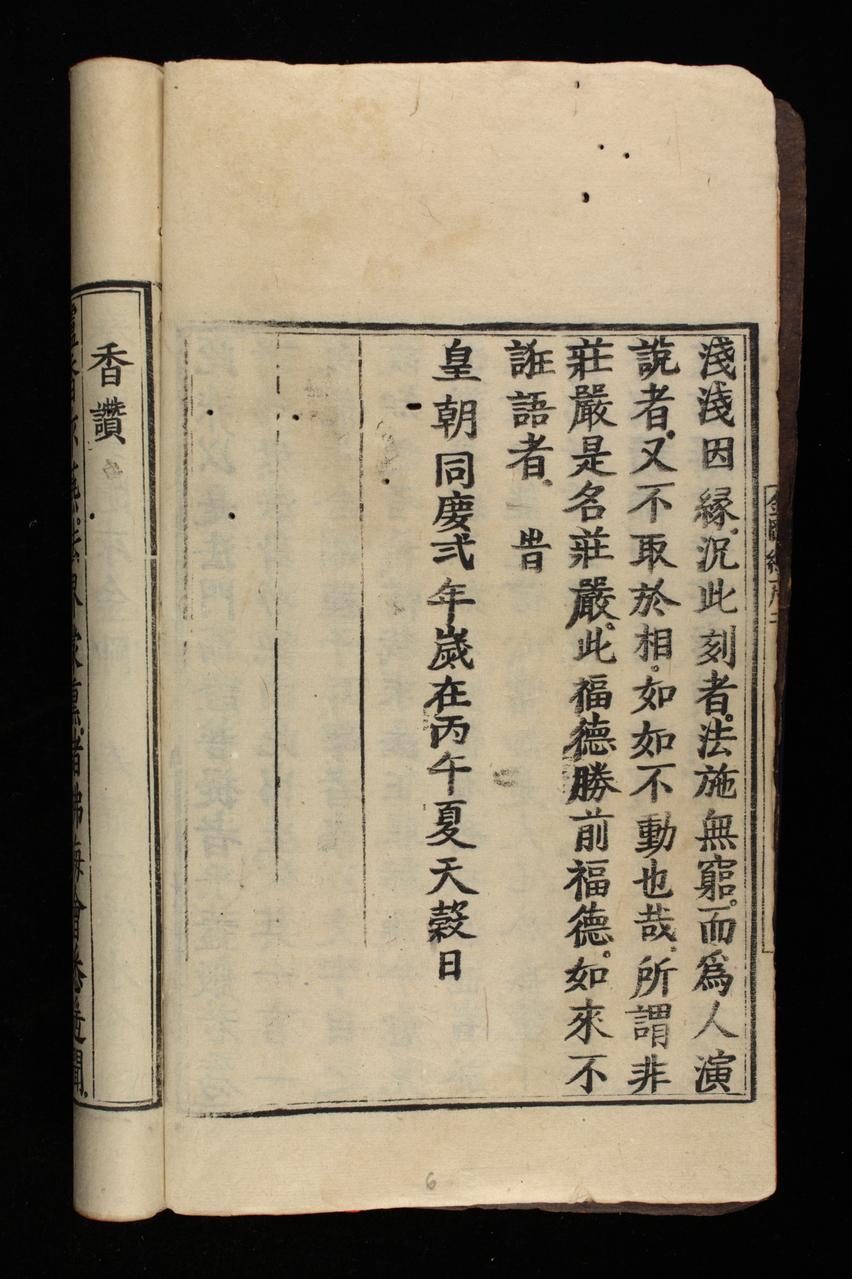 淺淺因緣。況此刻者。法施無窮。而爲人演
說者。又不取於相。如如不動也哉。所謂非
莊嚴是名莊嚴。此福德勝前福德。如來不
誑語者。旹
皇朝同慶弍年歲在丙午夏天穀日
香讚
6